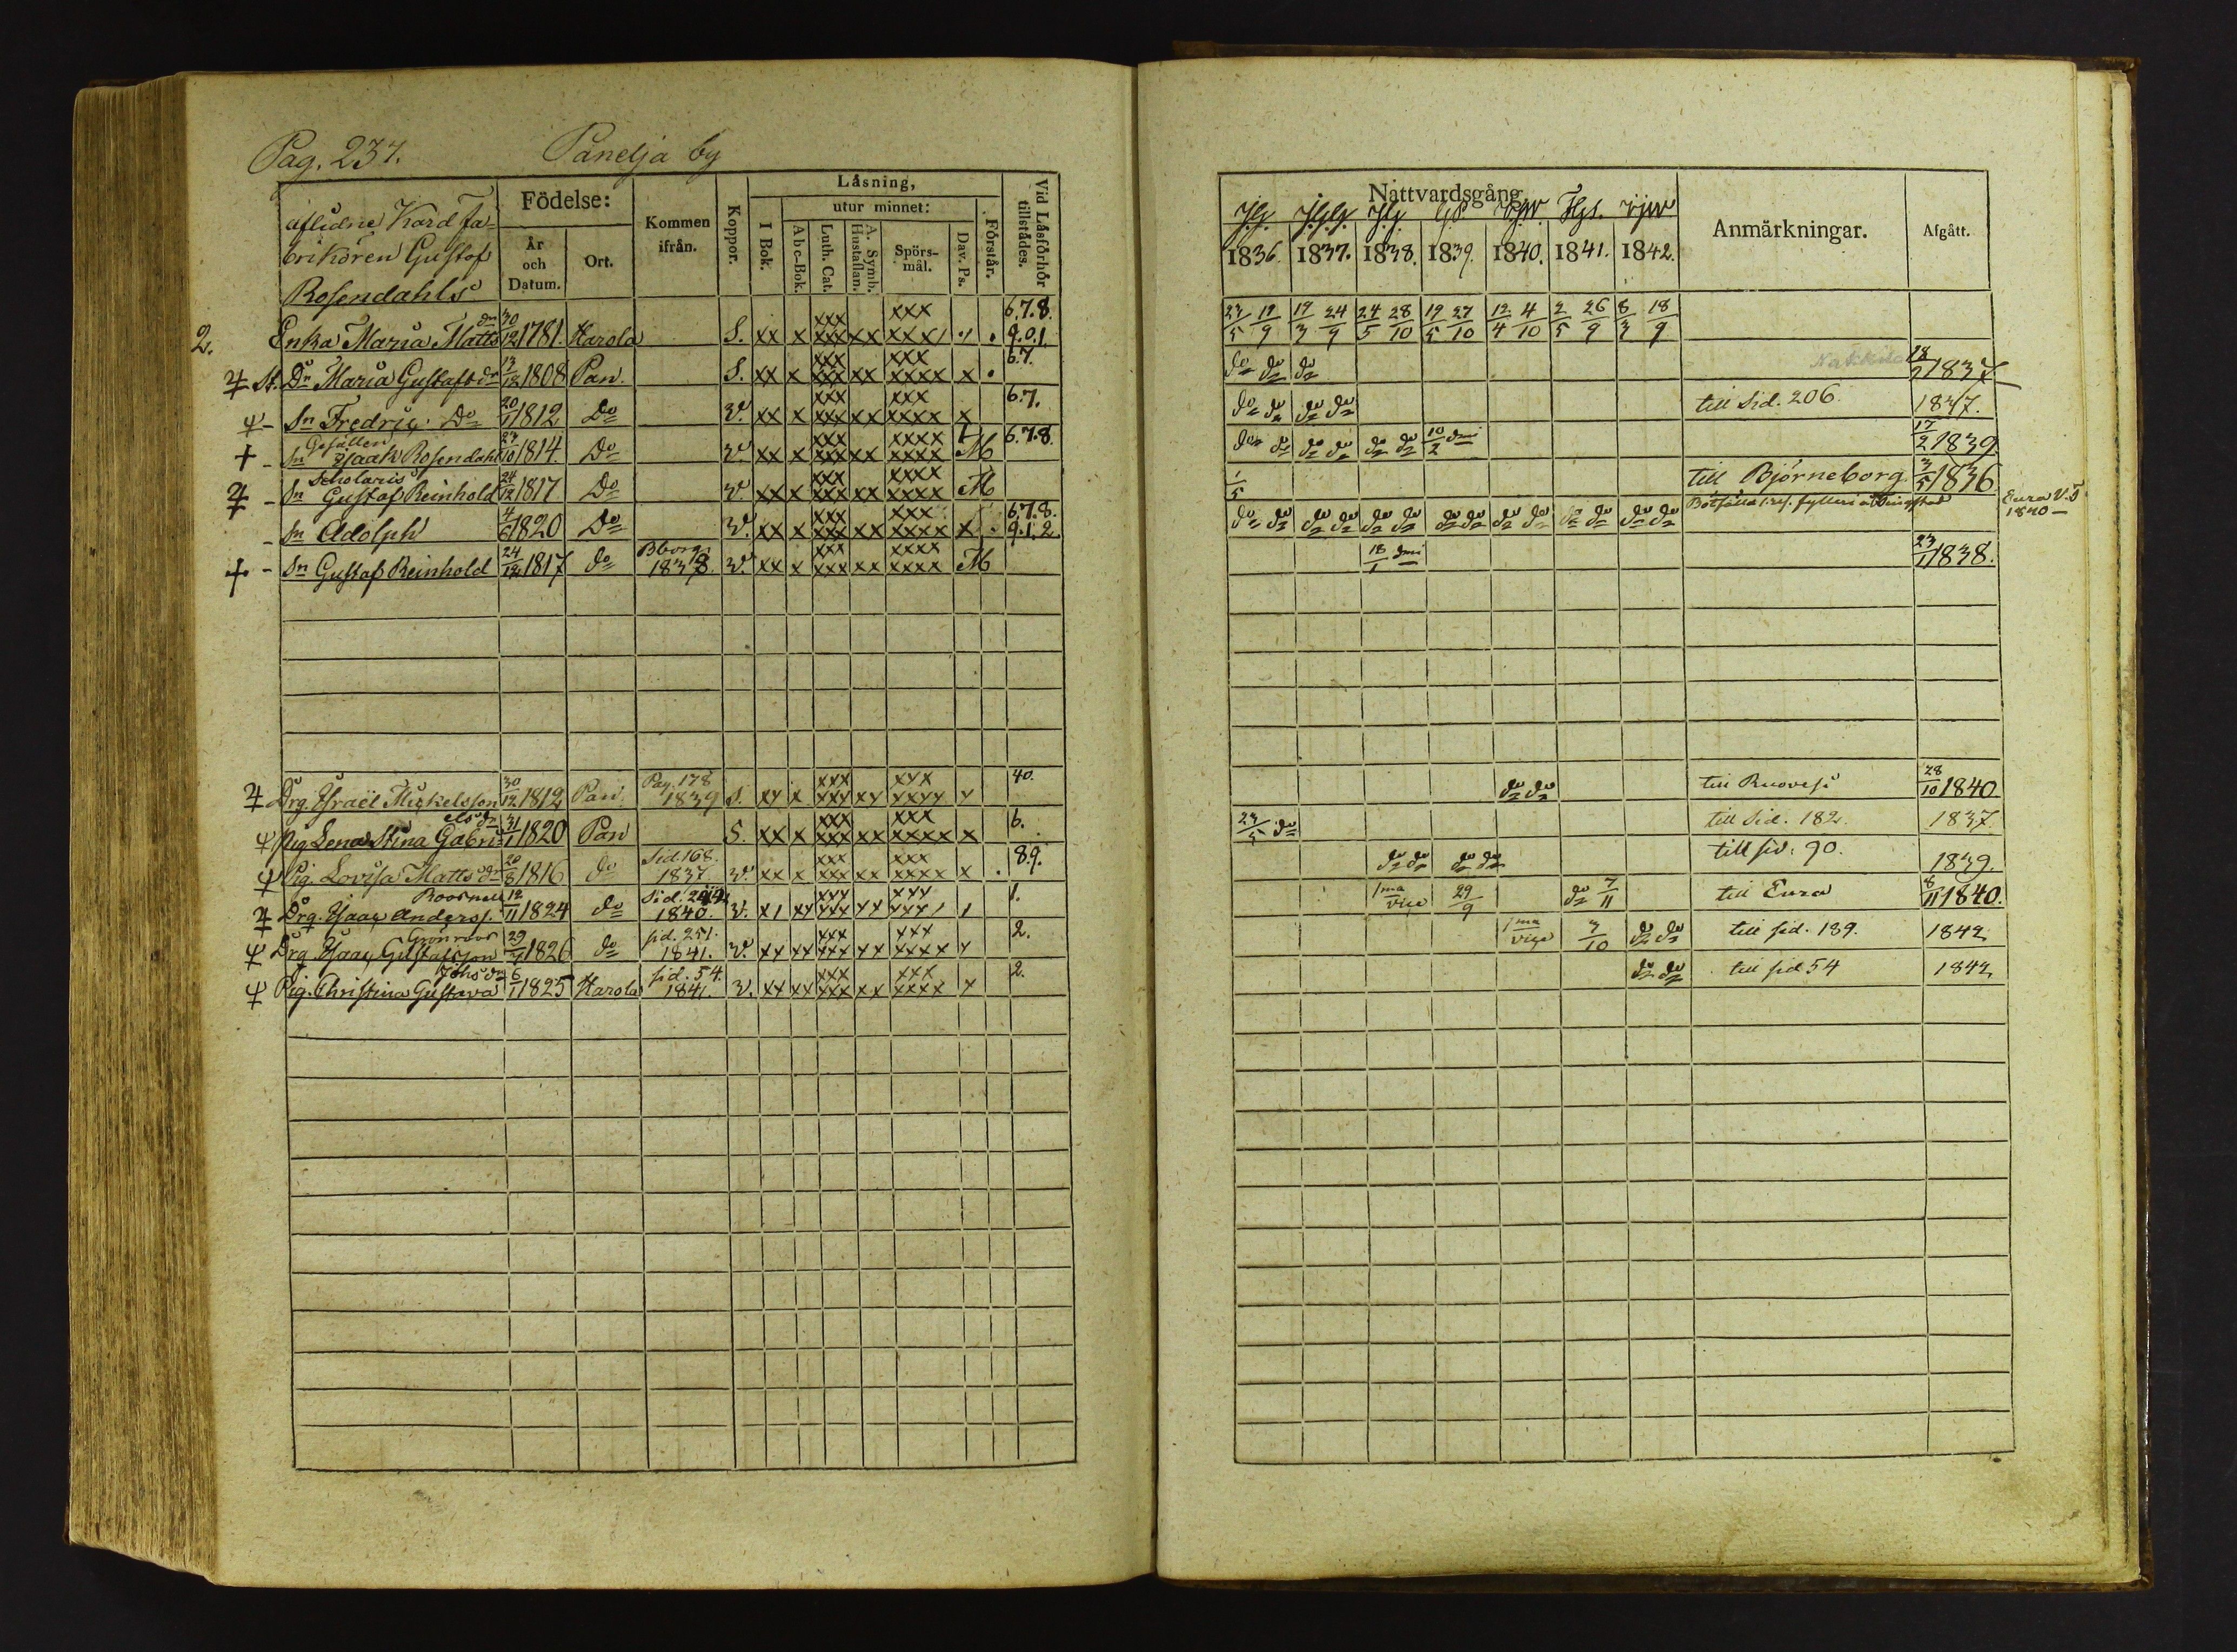 Pag. 237. Panelja by
aflidne Kardfa-
brikören Gustaf
Rosendahls
Födelse:
År och Datum.
Ort.
Kommen ifrån.
Koppor.
Läsning,
I Bok.
utur minnet:
Abc-Bok.
Luth. Cat.
A. Symb. Hustaflan.
Spörs-mål.
Dav. Ps.
Förstår.
Vid Läsförhör tillstädes.
2. Enka Maria Matts dr 30/12 1781. Harola S. xx x xxx xxx xx xxx 6.7.8. 9.0.1.
St. Dr Maria Gustafs dr 1808 Pan. S. xx x xxx xxx xx xxx xxxx x . 6.7.
Sn Fredric Do 20/1 1812 Do v. xx x xxx xxx xx xxx xxxx x 6.7.
Gesällen
Sn Isaak Rosendahl 1814. Do v. xx x xxx xxx xx xxxx xxxx M 6.7.8.
Scholaris
Sn Gustaf Reinhold 24/12 1817 Do v. xx x xxx xxx xx xxxx xxxx M
Sn Adolph 4/6 1820 Do v. xx x xxx xxx xx xxx xxxx x . 6.7.8. 9.1.2.
Sn Gustaf Reinhold 24/12 1817 do Bborg 1838 v. xx x xxx xxx xx xxxx xxxx M
Drg. Israël Mickelsson 30/12 1812 Pan Pag. 178 1839 S. xx x xxx xxx xx xxx xxxx x 40.
Pig. Lena Stina Gabriels dr 31/1 1820 Pan S. xx x xxx xxx xx xxx xxxx x 6.
Pig. Lovisa Matts dr 20/8 1816 do Sid. 168. 1837 v. xx x xxx xxx xx xxx xxxx x . 8.9.
Drg. Isaac Anderss. 12/11 1824 do 1840. v. 1.
Grönroos
Drg. Isaac Gustafsson 1826 do sid. 251. 1841. v. xx xx xxx xxx xx xxx xxxx x 2.
Johs dr
Pig. Christina Gustava 6/1 1825 Harola sid. 54. 1841. v. xx xx xxx xxx xx xxx xxxx x 2.
Nattvardsgång
1836. 1837. 1838. 1839. 1840. 1841. 1842.
Anmärkningar.
Afgått.
23/5 19/9 19/3 24/9 24/5 28/10 19/5 27/10 12/4 4/10 2/5 26/9 8/3 18/9
do do do Nakkila 1837
do do do do till Sid. 206. 1837.
do do do do do do 10/2 dmi 17/2 1839
1/5 till Björneborg. 3/5 1836
do do do do do do do do do do do do do do Eura 1840
18/1 dmi 23/11 1838.
do do till Ruovesi 28/10 1840
23/5 do till Sid. 182. 1837.
do do do do till sid. 90. 1839.
1ma vice 29/9 do 7/11 till Eura 8/11 1840.
1ma vice 3/10 do do till sid. 139. 1842
do do till sid 54 1842